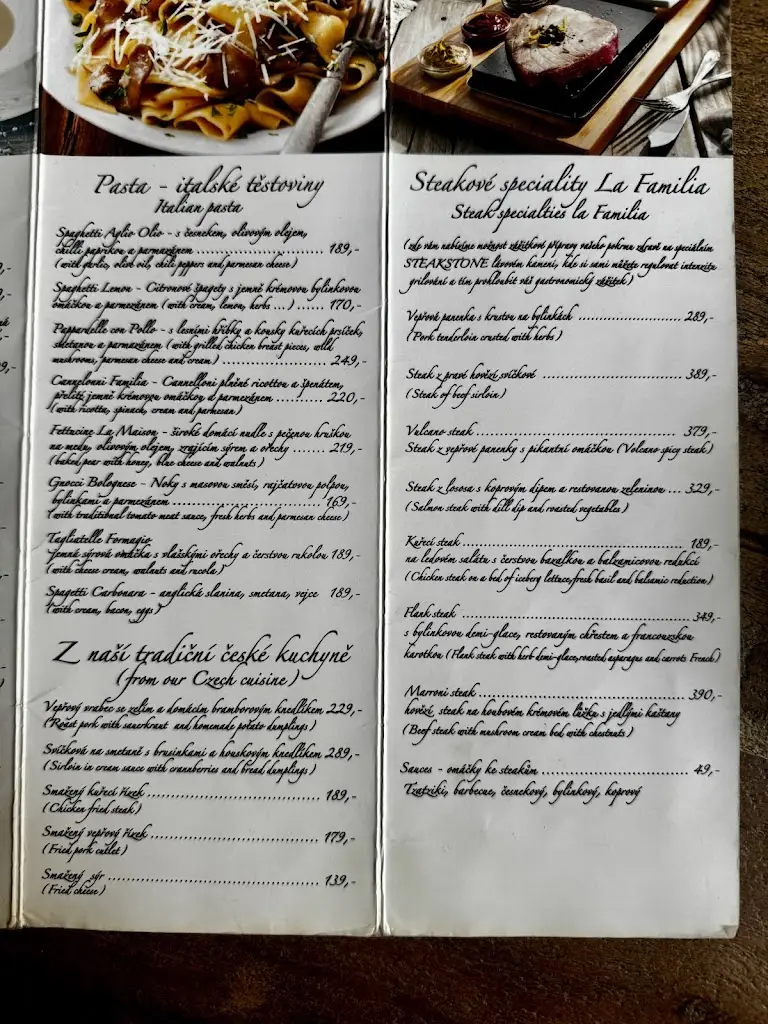 Pasta - italské těstoviny
Italian pasta
Spaghetti Aglio Olio - s česnekem, olivovým olejem,
chilli paprikou a parmazánem ........................... 189,-
(with garlic, olive oil, chili peppers and parmesan cheese)
Spaghetti Lemon - Citronové špagety s jemně krémovou bylinkovou
omáčkou a parmezánem (with cream, lemon, herbs ...) ...... 170,-
Pappardelle con Pollo - s lesními hříbky a kousky kuřecích prsíček,
smetanou a parmazánem (with grilled chicken breast pieces, wild
mushrooms, parmesan cheese and cream) ..................... 249,-
Cannelonni Familia - Cannelloni plněné ricottou a špenátem,
přelité jemně krémovou omáčkou a parmezánem ......... 220,-
(with ricotta, spinach, cream and parmesan)
Fettucine La Maison - široké domácí nudle s pečenou hruškou
na medu, olivovým olejem, zrajícím sýrem a ořechy ....... 219,-
(baked pear with honey, blue cheese and walnuts)
Gnocci Bolognese - Noky s masovou směsí, rajčatovou polpou,
bylinkami a parmezánem ............................... 169,-
(with traditional tomato meat sauce, fresh herbs and parmesan cheese)
Tagliatelle Formagio
-jemná sýrová omáčka s vlašskými ořechy a čerstvou rukolou 189,-
(with cheese cream, walnuts and rucola)
Spagetti Carbonara - anglická slanina, smetana, vejce 189,-
(with cream, bacon, eggs)
Z naší tradiční české kuchyně
(from our Czech cuisine)
Vepřový vrabec se zelím a domácím bramborovým knedlíkem 229,-
(Roast pork with saurkraut and homemade potato dumplings)
Svíčková na smetaně s brusinkami a houskovým knedlíkem 289,-
(Sirloin in cream sauce with crannberries and bread dumplings)
Smažený kuřecí řízek .............................. 189,-
(Chicken fried steak)
Smažený vepřový řízek .............................. 179,-
(Fried pork cutlet)
Smažený sýr ...................................... 139,-
(Fried cheese)
Steakové speciality La Familia
Steak specialties la Familia
(zde vám nabízíme možnost zážitkové přípravy vašeho pokrmu zdravě na speciálním
STEAKSTONE lávovém kameni, kde si sami můžete regulovat intenzitu
grilování a tím prohloubit váš gastronomický zážitek)
Vepřová panenka s krustou na bylinkách ................... 289,-
(Pork tenderloin crusted with herbs)
Steak z pravé hovězí svíčkové ......................... 389,-
(Steak of beef sirloin)
Vulcano steak ..................................... 379,-
Steak z vepřové panenky s pikantní omáčkou (Volcano spicy steak)
Steak z lososa s koprovým dipem a restovanou zeleninou ... 329,-
(Salmon steak with dill dip and roasted vegetables)
Kuřecí steak ........................................ 189,-
na ledovém salátu s čerstvou bazalkou a balzamicovou redukcí
(Chicken steak on a bed of iceberg lettuce, fresh basil and balsamic reduction)
Flank steak ........................................ 349,-
s bylinkovou demi-glace, restovaným chřestem a francouzskou
karotkou (Flank steak with herb demi-glace, roasted asparagus and carrots French)
Marroni steak ..................................... 390,-
hovězí steak na houbovém krémovém lůžku s jedlými kaštany
(Beef steak with mushroom cream bed with chestnuts)
Sauces - omáčky ke steakům .......................... 49,-
Tzatziki, barbecue, česnekový, bylinkový, koprový